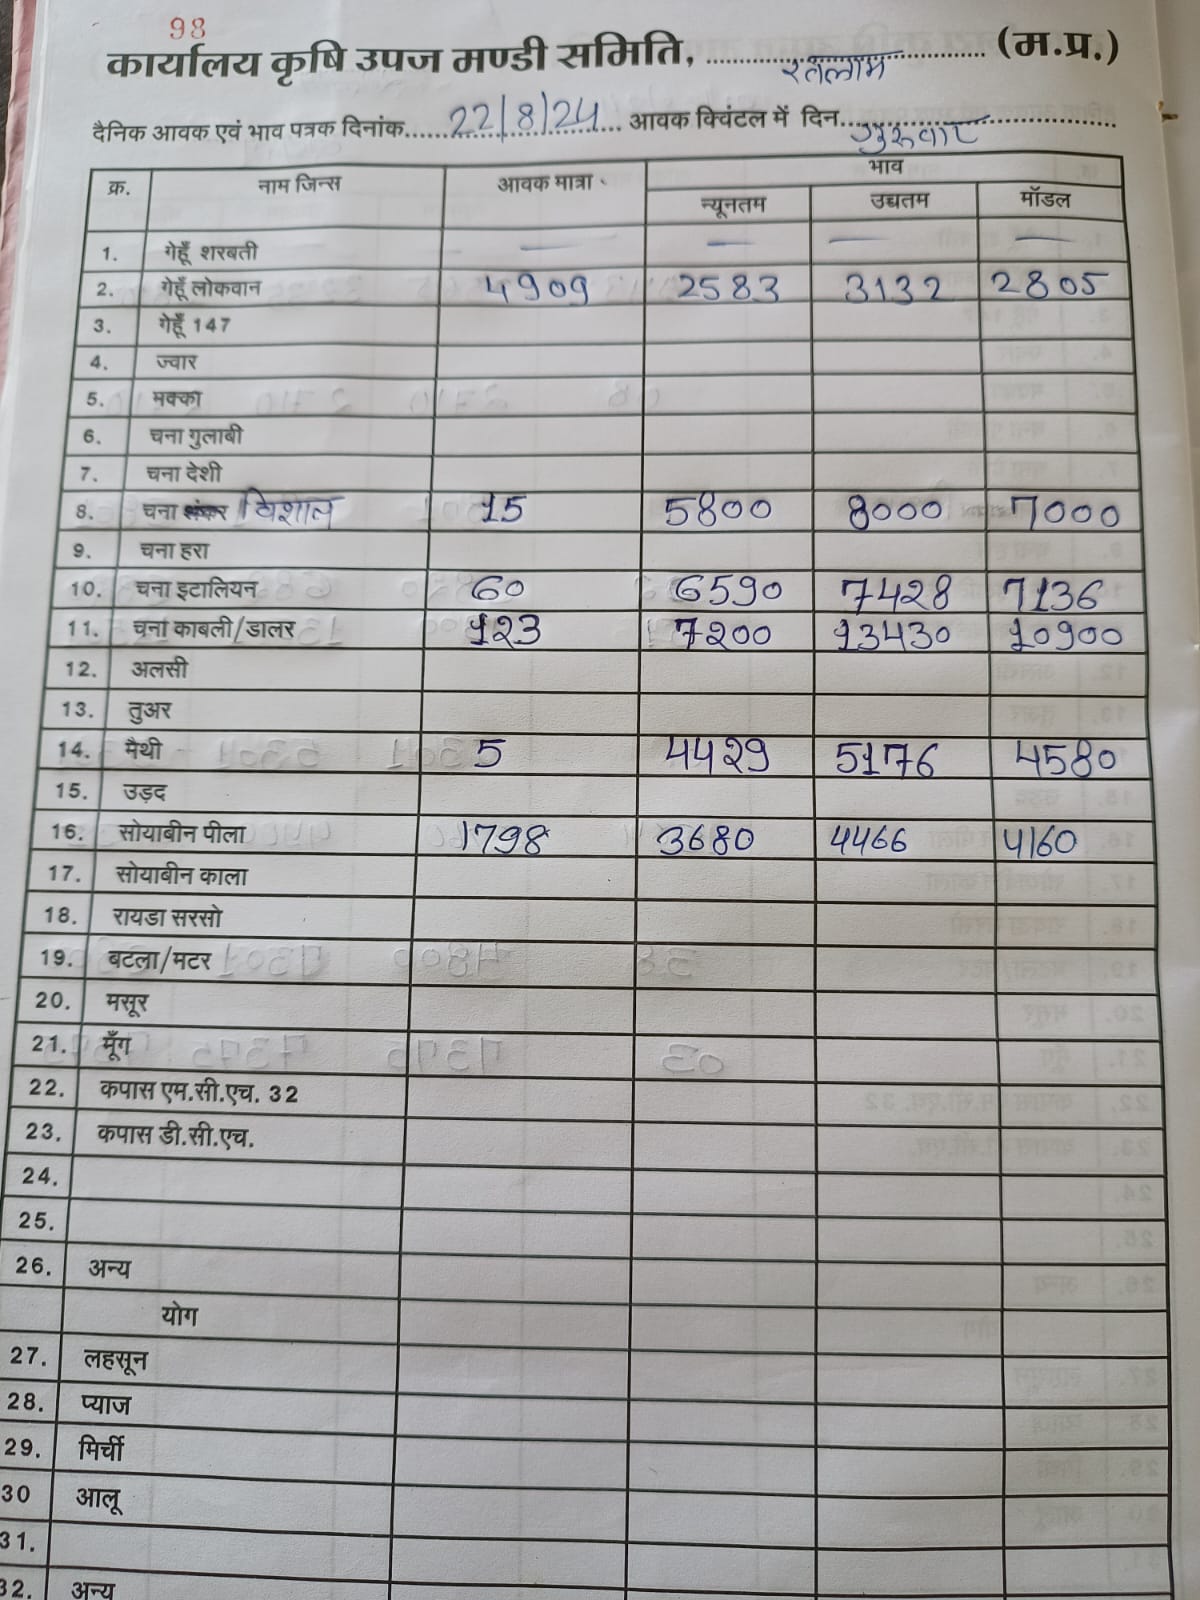 98
कार्यालय कृषि उपज मण्डी समिति, रतलाम (म.प्र.)
दैनिक आवक एवं भाव पत्रक दिनांक 22/8/24 आवक क्विंटल में दिन गुरुवार
क्र. नाम जिन्स आवक मात्रा भाव
न्यूनतम उच्चतम मॉडल
1. गेहूँ शरबती — — — —
2. गेहूँ लोकवान 4909 2583 3132 2805
3. गेहूँ 147
4. ज्वार
5. मक्का
6. चना गुलाबी
7. चना देशी
8. चना शंकर विशाल 15 5800 8000 7000
9. चना हरा
10. चना इटालियन 60 6590 7428 7136
11. चना काबली/डालर 123 7200 13430 10900
12. अलसी
13. तुअर
14. मैथी 5 4429 5176 4580
15. उड़द
16. सोयाबीन पीला 1798 3680 4466 4160
17. सोयाबीन काला
18. रायडा सरसो
19. बटला/मटर
20. मसूर
21. मूँग
22. कपास एम.सी.एच. 32
23. कपास डी.सी.एच.
24.
25.
26. अन्य
योग
27. लहसून
28. प्याज
29. मिर्ची
30 आलू
31.
32. अन्य